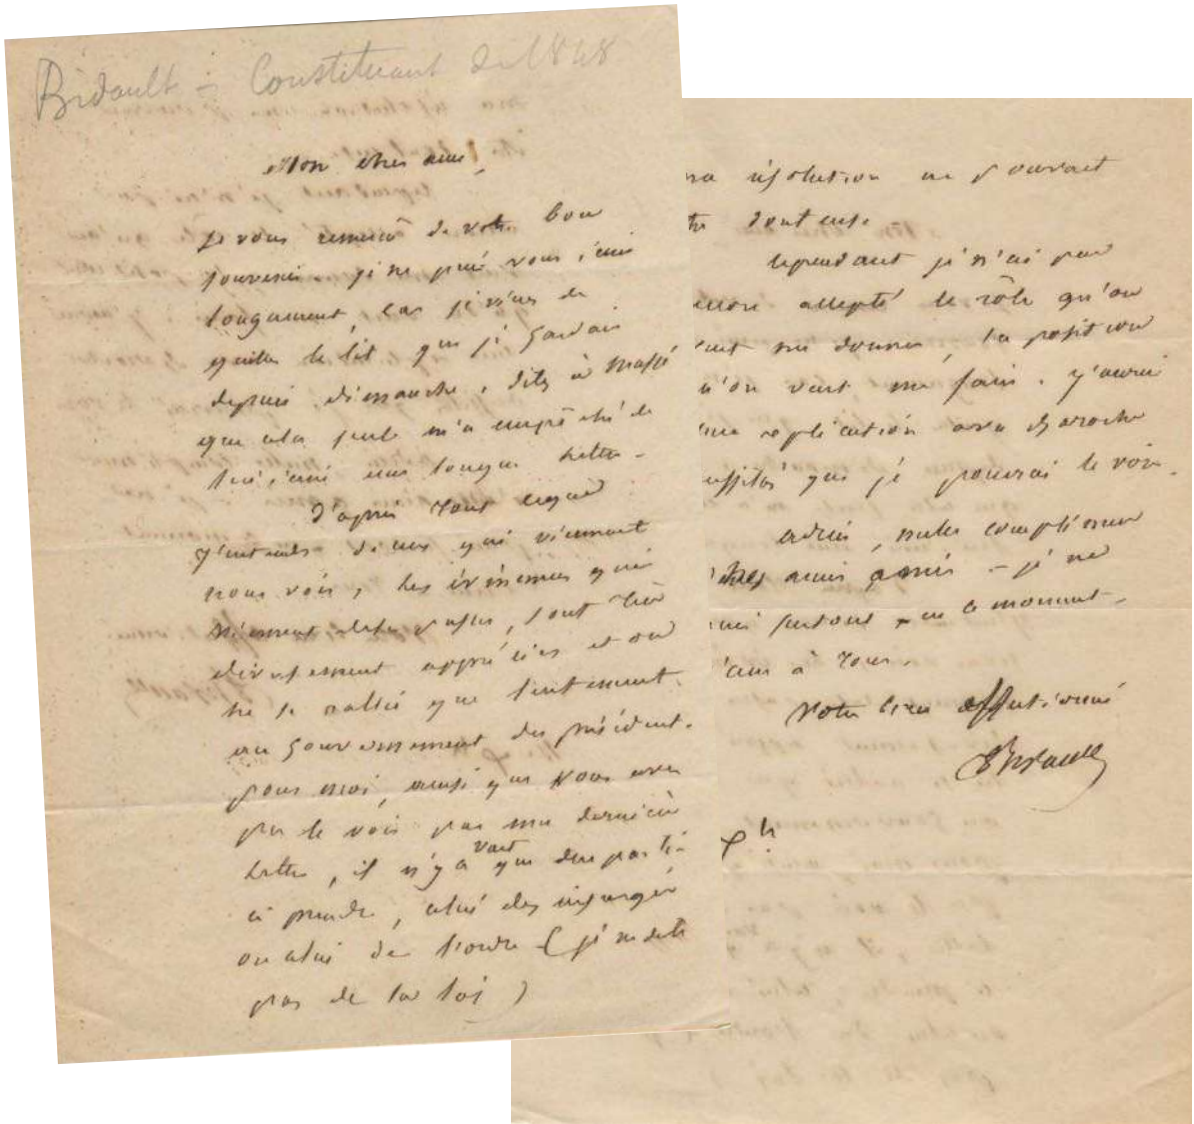 Bidault - Constituant de 1848
Mon cher ami,
Je vous remercie de votre bon
souvenir. je ne puis vous écrire
longuement, car je viens de
quitter le lit que je gardais
depuis dimanche. dites à Massé
que cela seul m'a empêché de
lui écrire une longue lettre.
D'après tout ce que
j'entends de ceux qui viennent
nous voir, les événements qui
viennent de se passer, sont très
diversement appréciés et on
ne se rallie que lentement
au gouvernement du président.
pour moi, ainsi que vous avez
pu le voir par ma dernière
lettre, il n'y avait que deux partis
à prendre, celui des insurgés
ou celui de l'ordre (je ne dis
pas de la loi)
ma résolution ne pouvait
être douteuse.
Cependant je n'ai pas
encore accepté le rôle qu'on
veut me donner, la position
qu'on veut me faire. j'aurai
une explication avec Baroche
aussitôt que je pourrai le voir.
adieu, mille compliments
amis - je ne
surtout en ce moment.
à tous.
Votre bien affectionné
Bidault